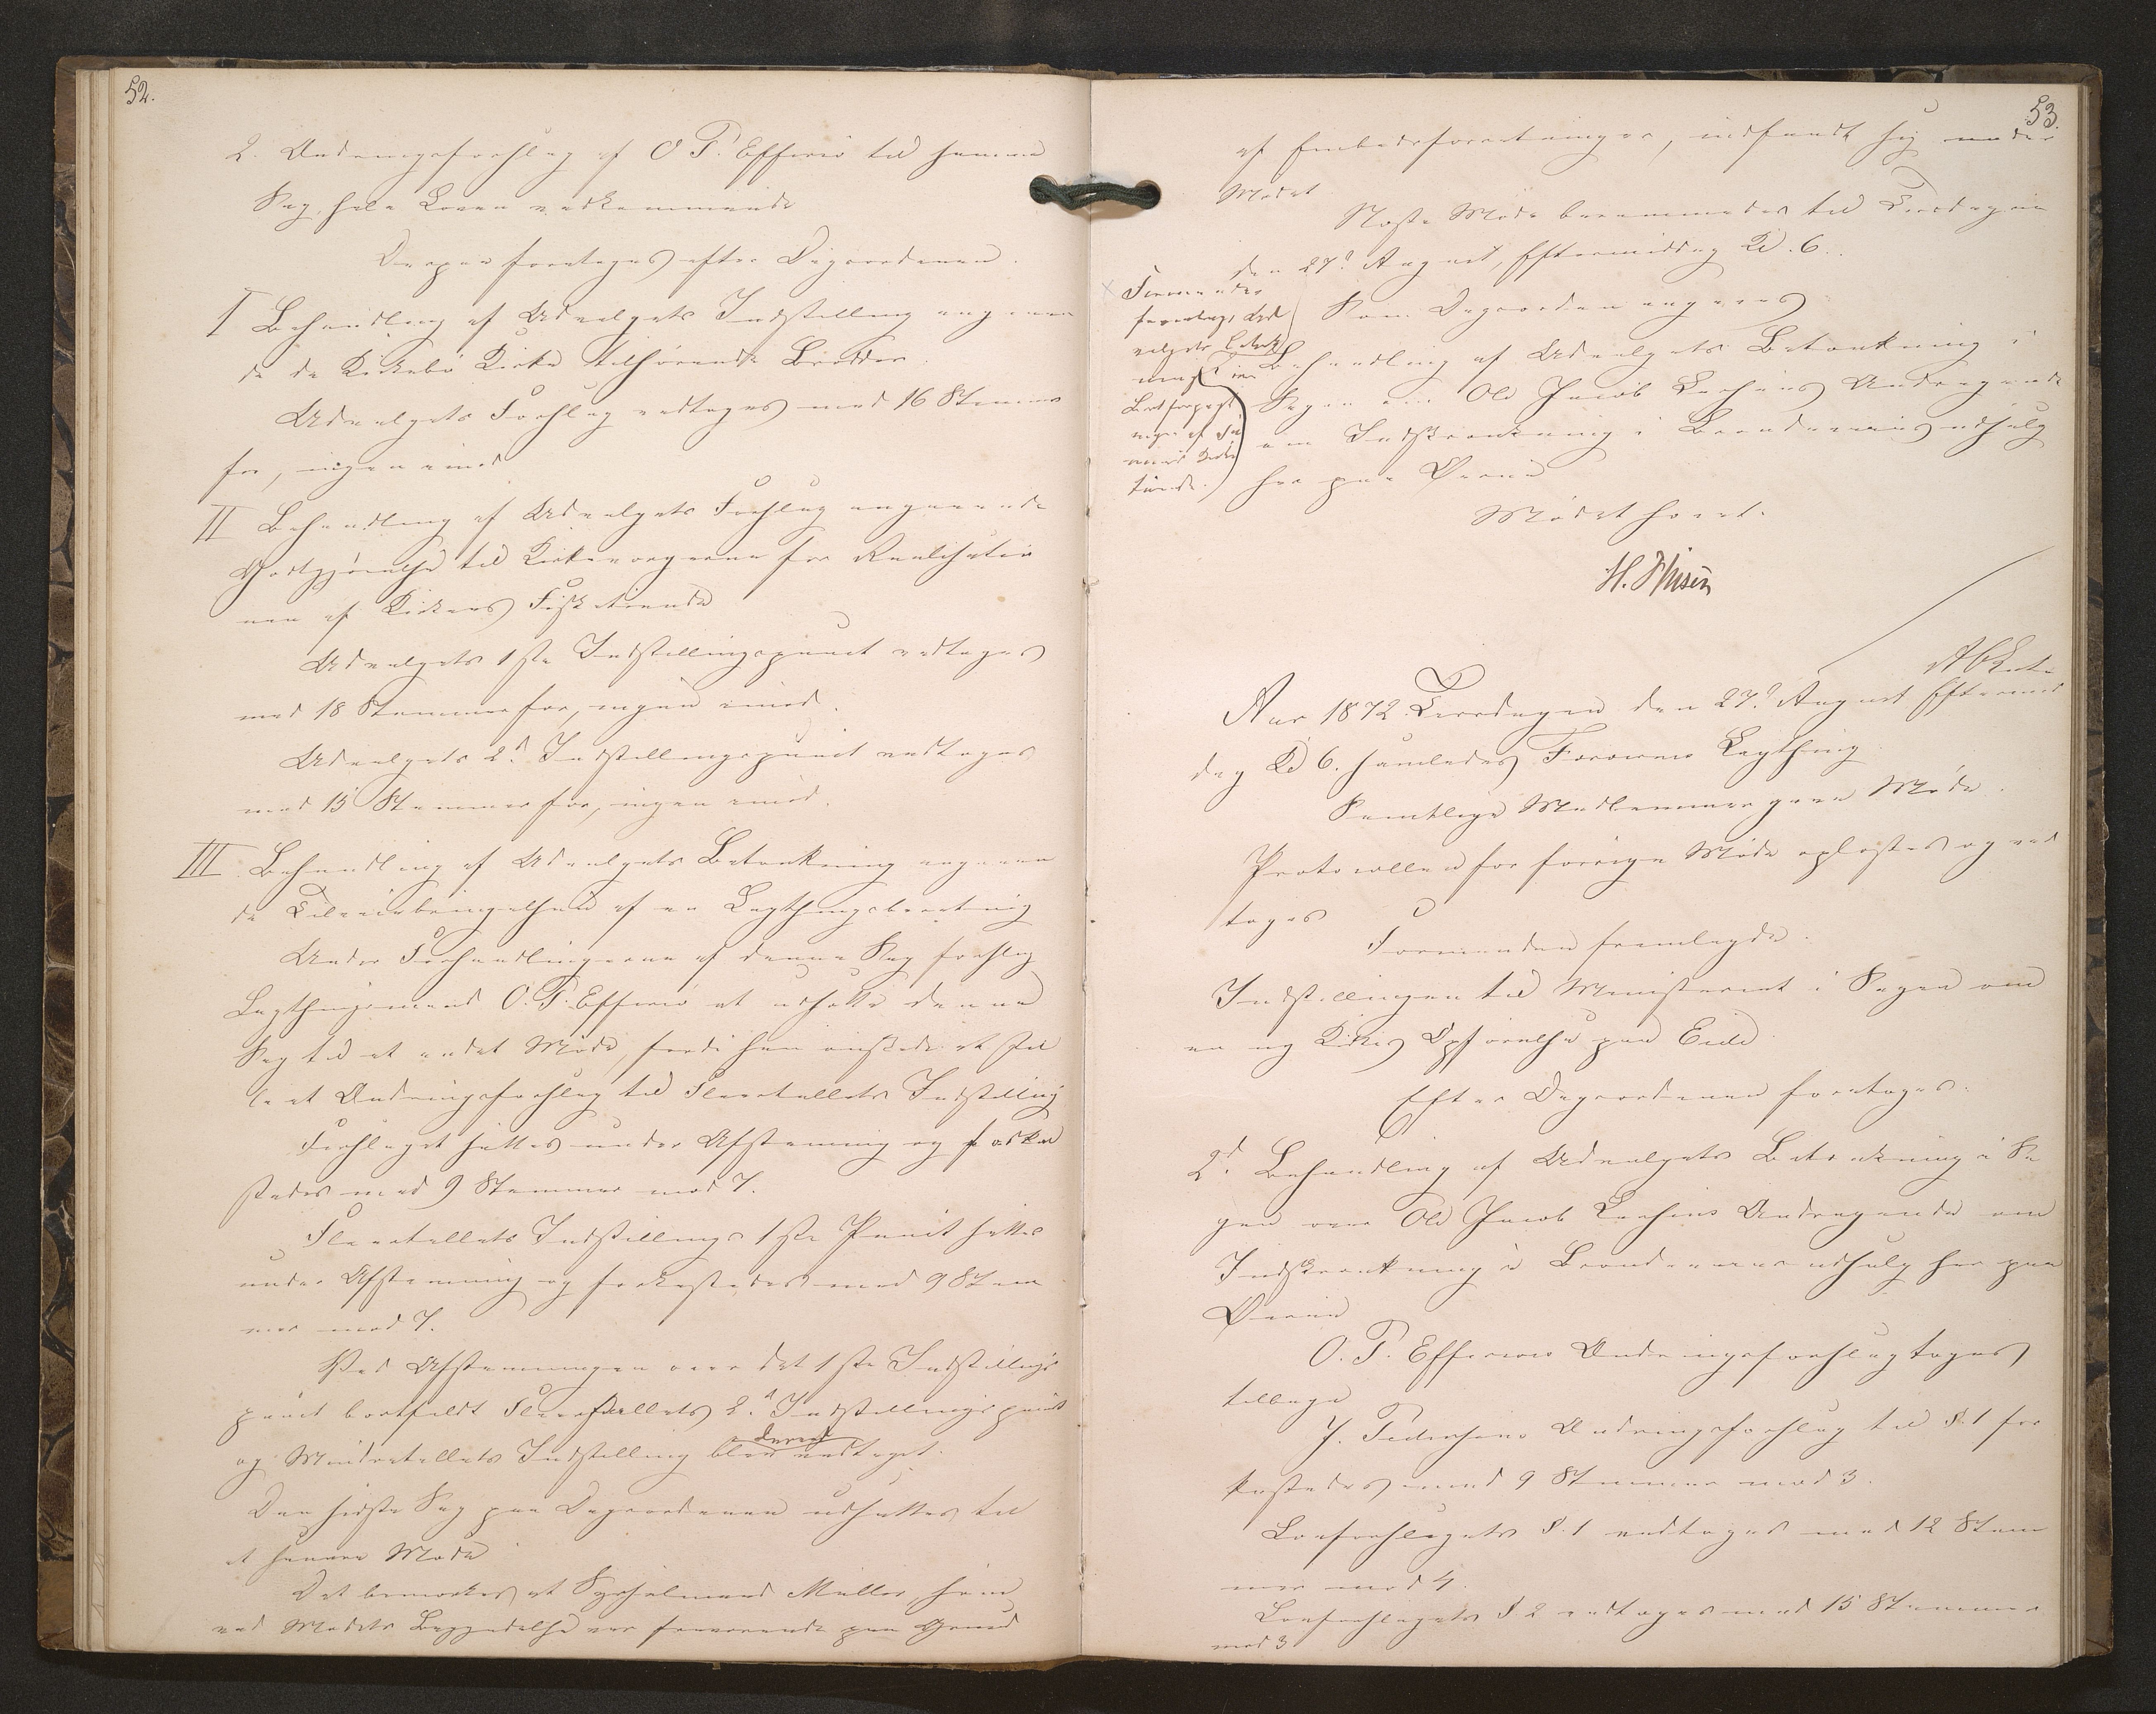 52.
2. Ændringsforslag af O. P. Effersø til samme
Sag, hele Loven vedkommende
Derpaa foretages efter Dagsordenen.
I Behandling af Udvalgets Indstilling angaaen
de de Kirkebø Kirke tilhørende Brødder.
Udvalgets Forslag vedtages med 16 Stemmer
for, ingen imod
II Behandling af Udvalgets Forslag angaaende
Godtgjørelse til Kirkeværgerne for Realisatio
nen af Kirkens Fisketiende
Udvalgets 1ste Indstillingspunct vedtages
med 18 Stemmer for, ingen imod.
Udvalgets 2d. Indstillingspunct vedtages
med 15 Stemmer for, ingen imod.
III Behandling af Udvalgets Betænkning angaaen
de Tilveiebringelsen af en Lagthingsberetning
Under Forhandlingerne af denne Sag foreslog
Lagthingsmand O. P. Effersø at udsætte denne
Sag til et andet Møde, fordi han ønskede at stil
le et Ændringsforslag til Fleertallets Indstilling
Forslaget sattes under Afstemning og forka
stedes med 9 Stemmer mod 7.
Fleertallets Indstillings 1ste Punct sattes
under Afstemning og forkastedes med 9 Stem
mer mod 7.
Ved Afstemningen over det 1ste Indstillings
punct bortfaldt Fleertallets 2d. Indstillingspunct
og Mindretallets Indstilling blev derved vedtaget.
Den sidste Sag paa Dagsordenen udsattes til
et senere Møde
Det bemærkes at Sysselmand Müller, som
ved Mødets Begyndelse var fraværende paa Grund
53.
af Embedsforretninger, indfandt sig under
Mødet
Næste Møde berammedes til Tirsdagen
den 27d. August, Eftermiddag Kl. 6.
Som Dagsorden angaves
x Formanden
foreslags Ud
valgets Betænk
ning i
Behandling af Udvalgets Betænkning i
Sagen om Ole Jacob Larsens Andragende
om Indskrænkning i Brændeviinsudsalg
her paa Øerne
Mødet hævet.
Aar 1872 Tirsdagen den 27d. August Eftermid
dag Kl 6. samledes Færøernes Lagthing
Samtlige Medlemmer gave Møde.
Protocollen for forrige Møde oplæstes og ved
toges
Formanden fremlagde.
Indstillingen til Ministeriet i Sagen om
en ny Kirkes Opførelse paa Eide
Efter Dagsordenen foretages.
2d. Behandling af Udvalgets Betænkning i Sa
gen om Ole Jacob Larsens Andragende om
Indskrænkning i Brændeviinsudsalg her paa
Øerne
O. P. Effersøes Ændringsforslag toges
tilbage
J. Petersens Ændringsforslag til §. 1 for
kastedes med 9 Stemmer mod 3.
Lovforslagets §. 1 vedtoges med 12 Stem
mer mod 4.
Lovforslagets § 2 vedtoges med 15 Stemmer
mod 3